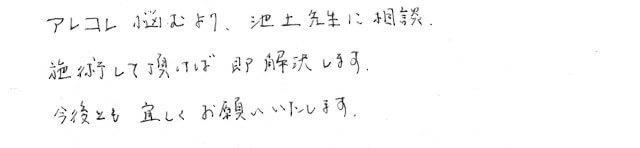 アレコレ悩むより、池上先生に相談.
施術して頂けば即解決します.
今後とも宜しくお願いいたします.